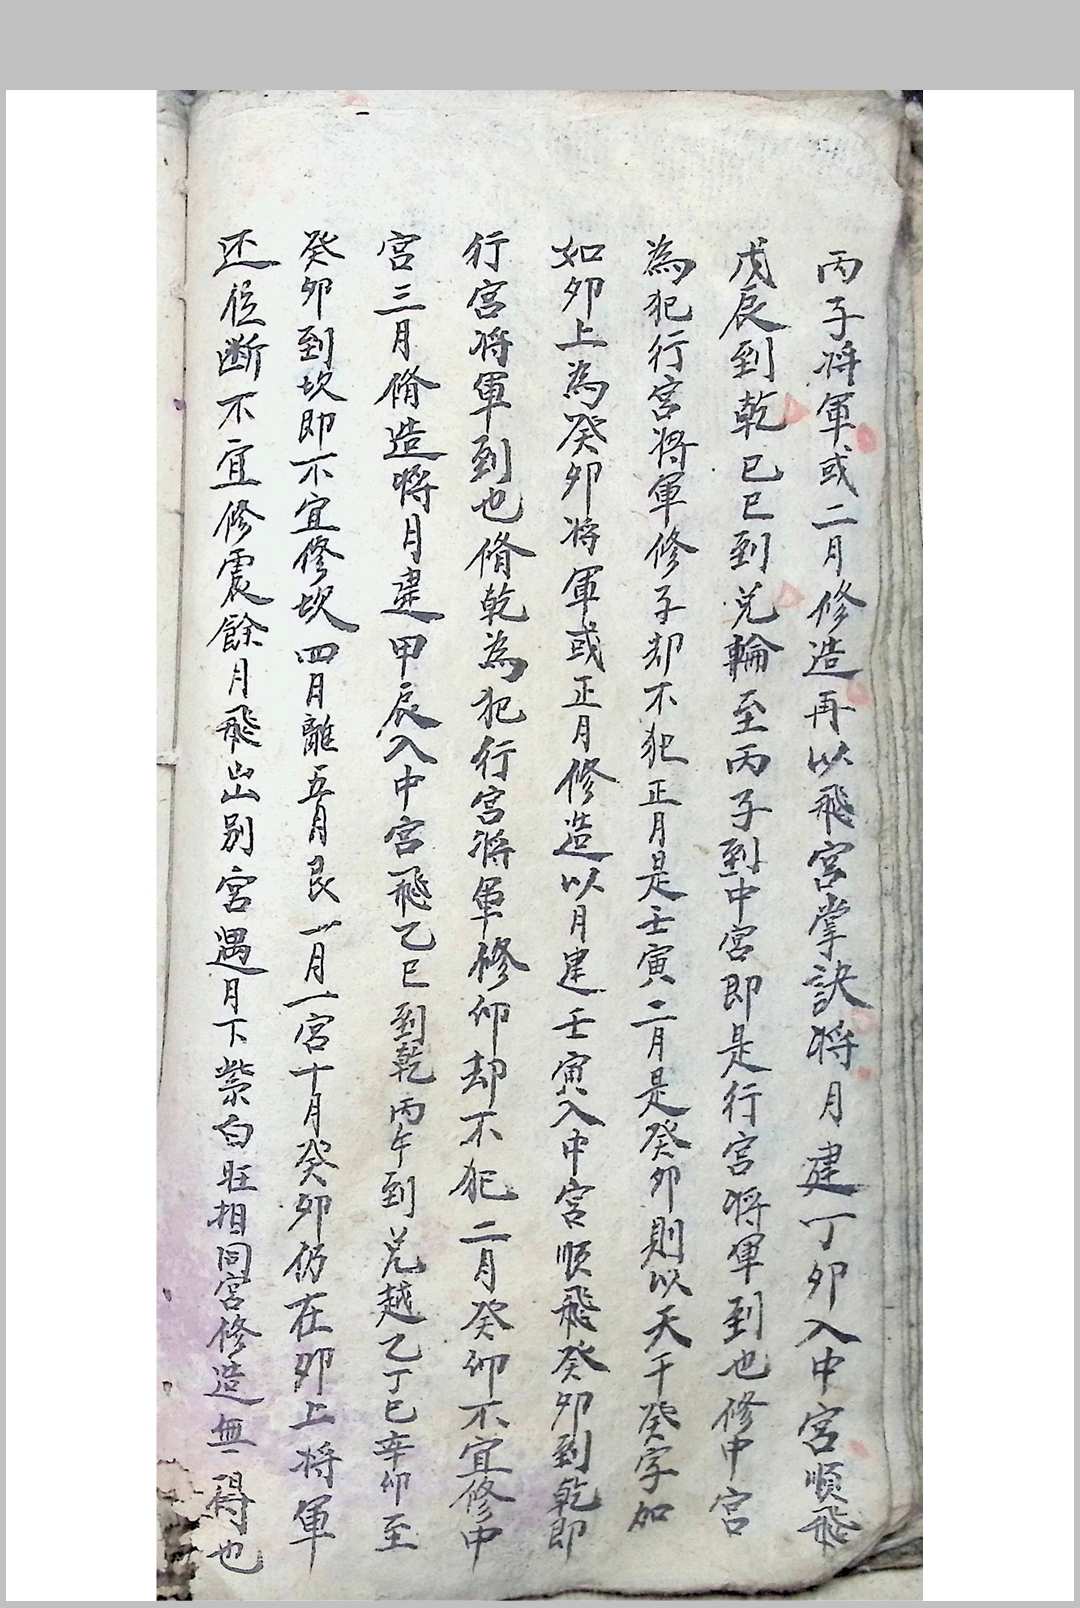 丙子将軍或二月修造再以飛宮掌訣将月建丁卯入中宮順飛
戊辰到乾己巳到兌輪至丙子到中宮即是行宮将軍到也修中宮
為犯行宮将軍修子却不犯正月是壬寅二月是癸卯則以天干癸字如
如卯上為癸卯将軍或正月修造以月建壬寅入中宮順飛癸卯到乾即
行宮将軍到也脩乾為犯行宮将軍修卯却不犯二月癸卯不宜修中
宮三月脩造將月建甲辰入中宮飛乙巳到乾丙午到兌越乙丁巳辛卯至
癸卯到坎即不宜修坎四月離五月艮一月一宮十月癸卯仍在卯上将軍
还位断不宜修震餘月飛出别宮遇月下紫白旺相同宮修造無碍也